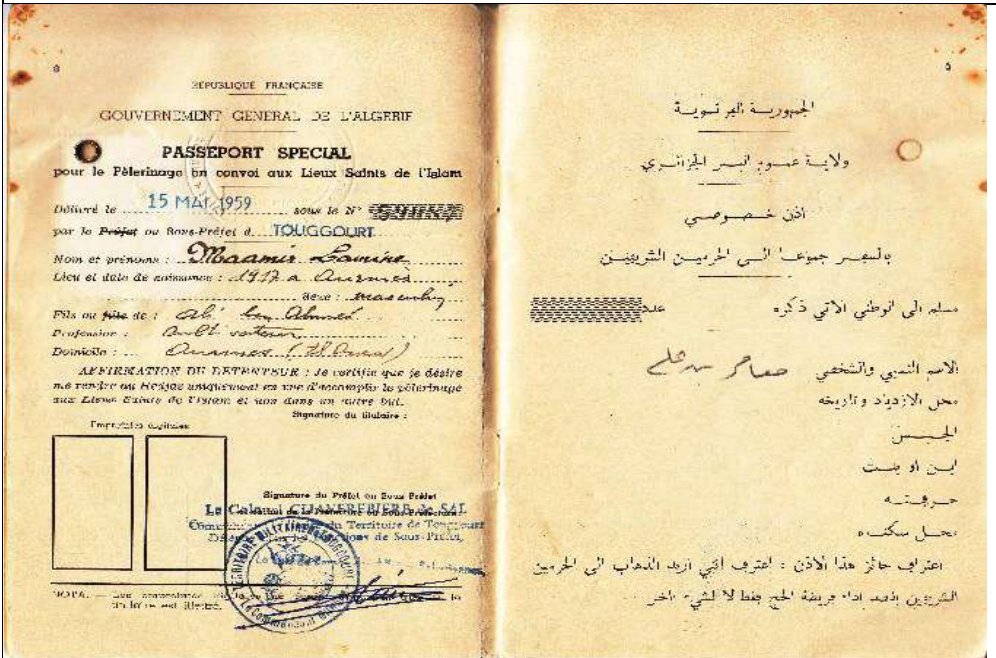 8
RÉPUBLIQUE FRANÇAISE
GOUVERNEMENT GENERAL DE L'ALGERIE
PASSEPORT SPECIAL
pour le Pèlerinage en convoi aux Lieux Saints de l'Islam
Délivré le 15 MAI 1959 sous le N°
par le Préfet ou Sous-Préfet d TOUGGOURT
Nom et prénoms : Maamir Lamine
Lieu et date de naissance : 1917 a Ourmes
Sexe : masculin
Fils ou fille de : Ali ben Ahmed
Profession : Cultivateur
Domicile : Ourmes (El Oued)
AFFIRMATION DU DETENTEUR : Je certifie que je désire
me rendre au Hedjaz uniquement en vue d'accomplir le pèlerinage
aux Lieux Saints de l'Islam et non dans un autre but.
Signature du titulaire :
Empreintes digitales
Signature du Préfet ou Sous-Préfet
Le Colonel
du Territoire de Touggourt
de Sous-Préfet,
TERRITOIRE MILITAIRE TOUGGOURT
Le Commandant
NOTA. — Les
titulaire est illettré.
٥
الجمهورية الفرنسوية
ولاية عموم البر الجزائري
اذن خصوصي
بالسفر جموعا الى الحرمين الشريفين
مسلم الى الوطني الآتي ذكره
الاسم النسبي والشخصي معامر بن علي
محل الازدياد وتاريخه
الجنس
ابن او بنت
حرفته
محل سكناه
اعتراف حائز هذا الاذن : اعترف انني اريد الذهاب الى الحرمين
الشريفين بقصد اداء فريضة الحج فقط لا لشيء اخر